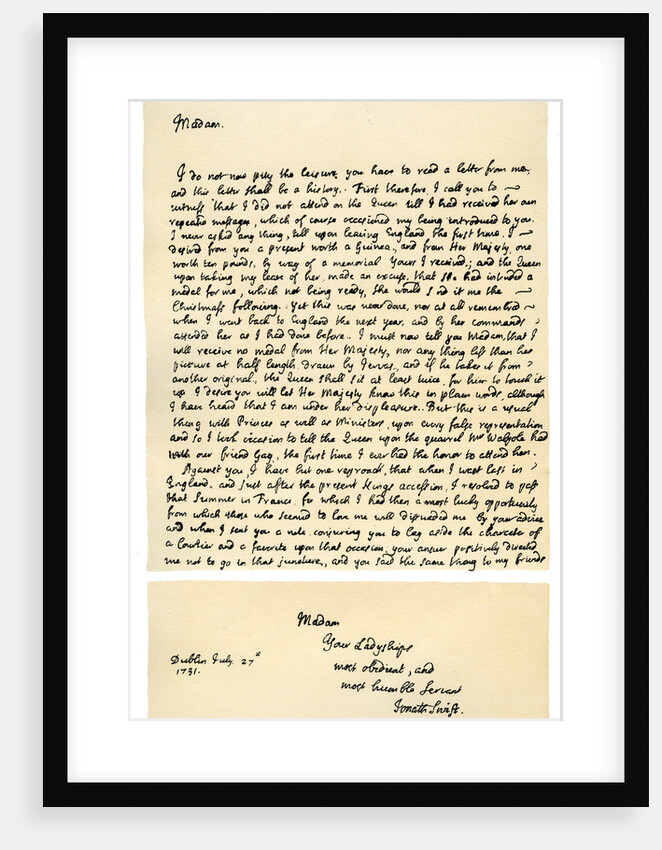 Madam.
I do not now pity the leisure you have to read a letter from me,
and this letter shall be a history. First therefore, I call you to
witness that I did not attend on the Queen till I had received her own
repeated messages, which of course occasioned my being introduced to you.
I never asked any thing, till upon leaving England the first time, I
desired from you a present worth a Guinea, and from Her Majesty, one
worth ten pounds, by way of a memorial Yours I received; and the Queen
upon taking my leave of her, made an excuse, that she had intended a
medal for me, which not being ready, she would send it me the
Christmass following. Yet this was never done, nor at all remembred
when I went back to England the next year, and by her commands
attended her as I had done before. I must now tell you Madam, that I
will receive no medal from Her Majesty, nor any thing less than her
picture at half length, drawn by Jervas, and if he takes it from
another original, the Queen shall sit at least twice for him to touch it
up I desire you will let Her Majesty know this in plain words, although
I have heard that I am under her displeasure. But this is a usual
thing with Princes as well as Ministers, upon every false representation
and so I took occasion to tell the Queen upon the quarrel Mr Walpole had
with our friend Gay, the first time I ever had the honor to attend her.
Against you I have but one reproach, that when I was last in
England, and just after the present Kings accession, I resolved to pass
that Summer in France, for which I had then a most lucky opportunity
from which those who seemed to love me well dissuaded me by your advice
and when I sent you a note, conjuring you to lay aside the character of
a Courtier and a favorite upon that occasion, your answer positively directed
me not to go in that juncture, and you said the same thing to my friends
Madam
Your Ladyships
most obedient, and
most humble Servant
Jonath Swift.
Dublin July. 27th
1731.